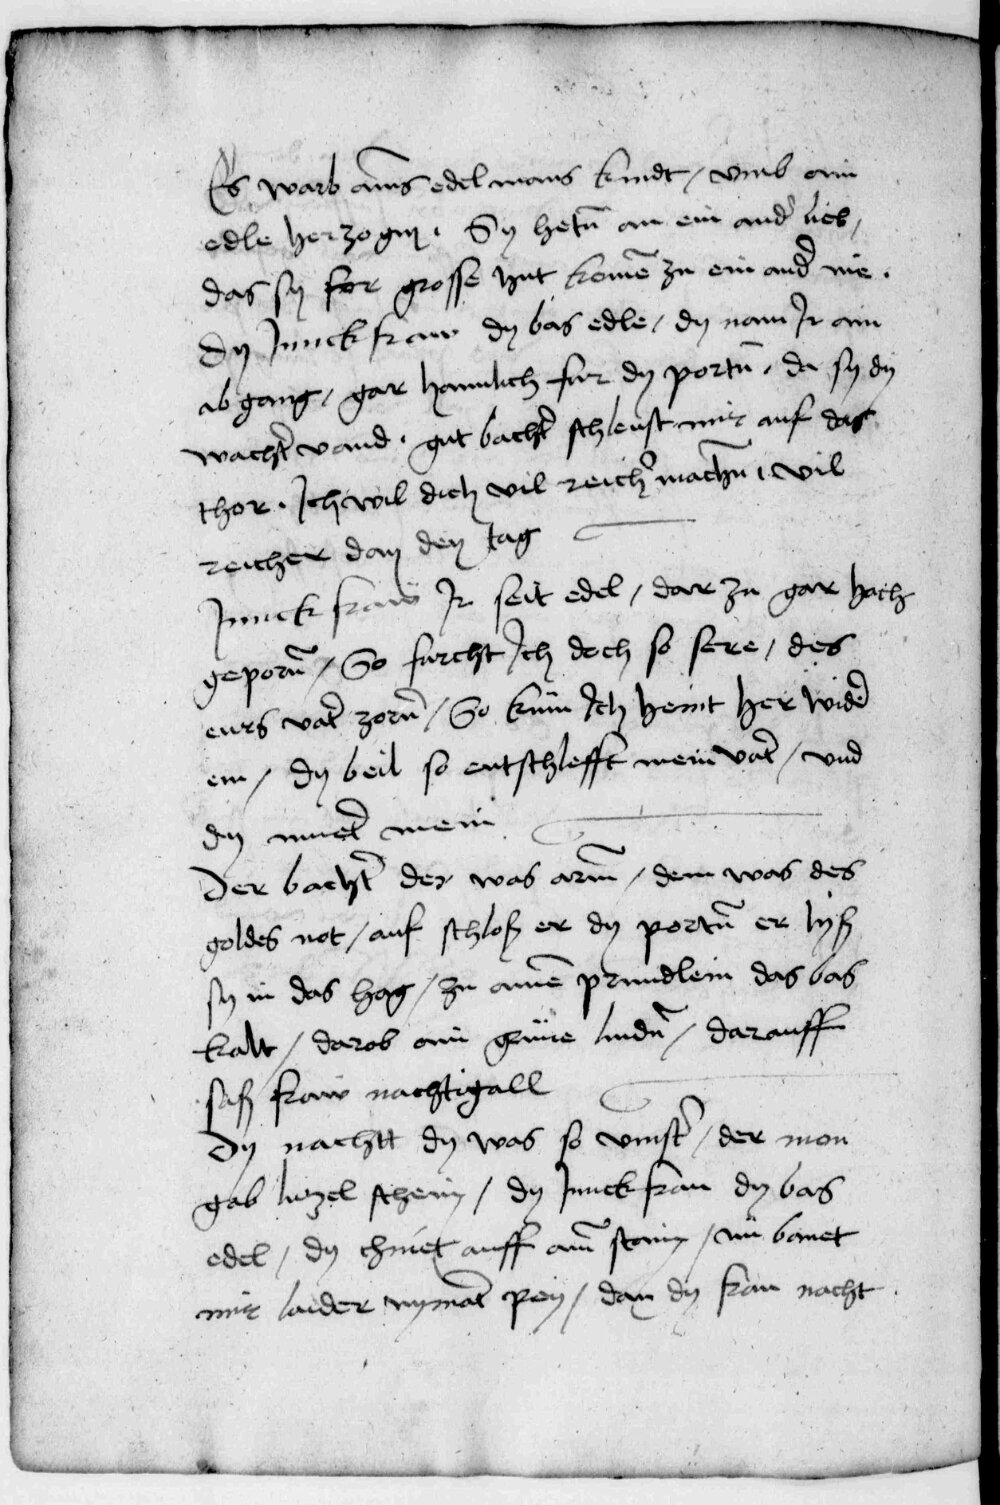 Es warb ains edel mans kindt / vmb ain
edle herzogin . Sy hetn̄ an ein and̄ lieb /
das sy for grosse hut komē zu ein and̄ nie .
Dy Junckfraw dy bas edle / dy nam Ir ain
ab gang / gar haimlich fur dy portn̄ . da sy dy
wacht̄ vand . gut bacht̄ schleust mir auf das
thor . Ich wil dich vil reich̄ machn̄ . vil
reicher dan den tag
Junckfraw Ir seit edel / dar zu gar hoch
geporn̄ / So furcht Ich doch so sere / des
eurs vat̄ zorn̄ / So kum Ich heint her wid̄
ein / dy beil so entschlefft mein vat̄ / vnd
dy muet̄ mein
Der bacht̄ der was arm̄ / dem was des
goldes not / auf schloß er dy portn̄ er lyß
sy in das hag / zu ainē prundlein das bas
kalt / darob ain grüne lindn̄ / darauff
saß fraw nachtigall
Dy nachtt dy was so vinst̄ / der mon
gab luzel schein / dy Junckfrau dy bas
edel / dy chniet auff ain̄ stain / nu bonet
mir laider nymāt pey / dan dy frau nacht